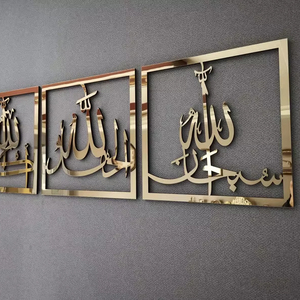 سبحان الله
الحمد لله
الله